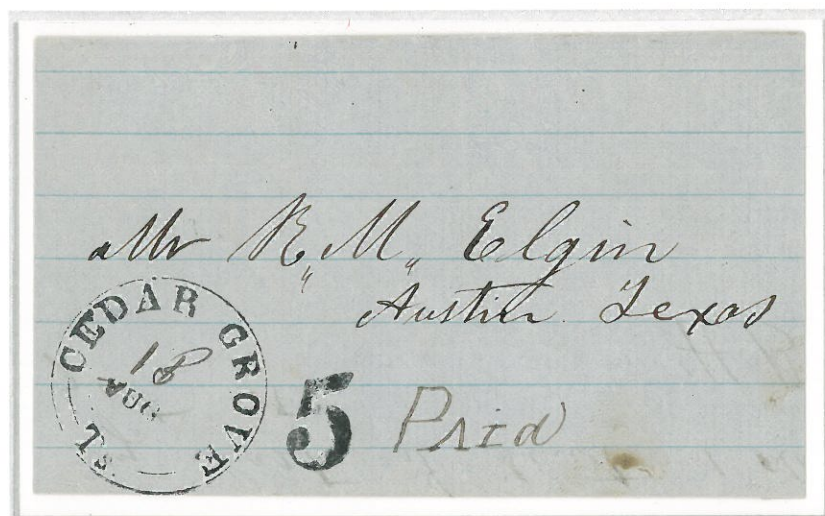 Mr R,, M,, Elgin
Austin Texas
CEDAR GROVE Ts.
18
AUG
5 Paid